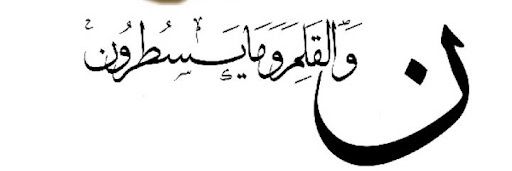 ن وَالْقَلَمِ وَمَا يَسْطُرُونَ